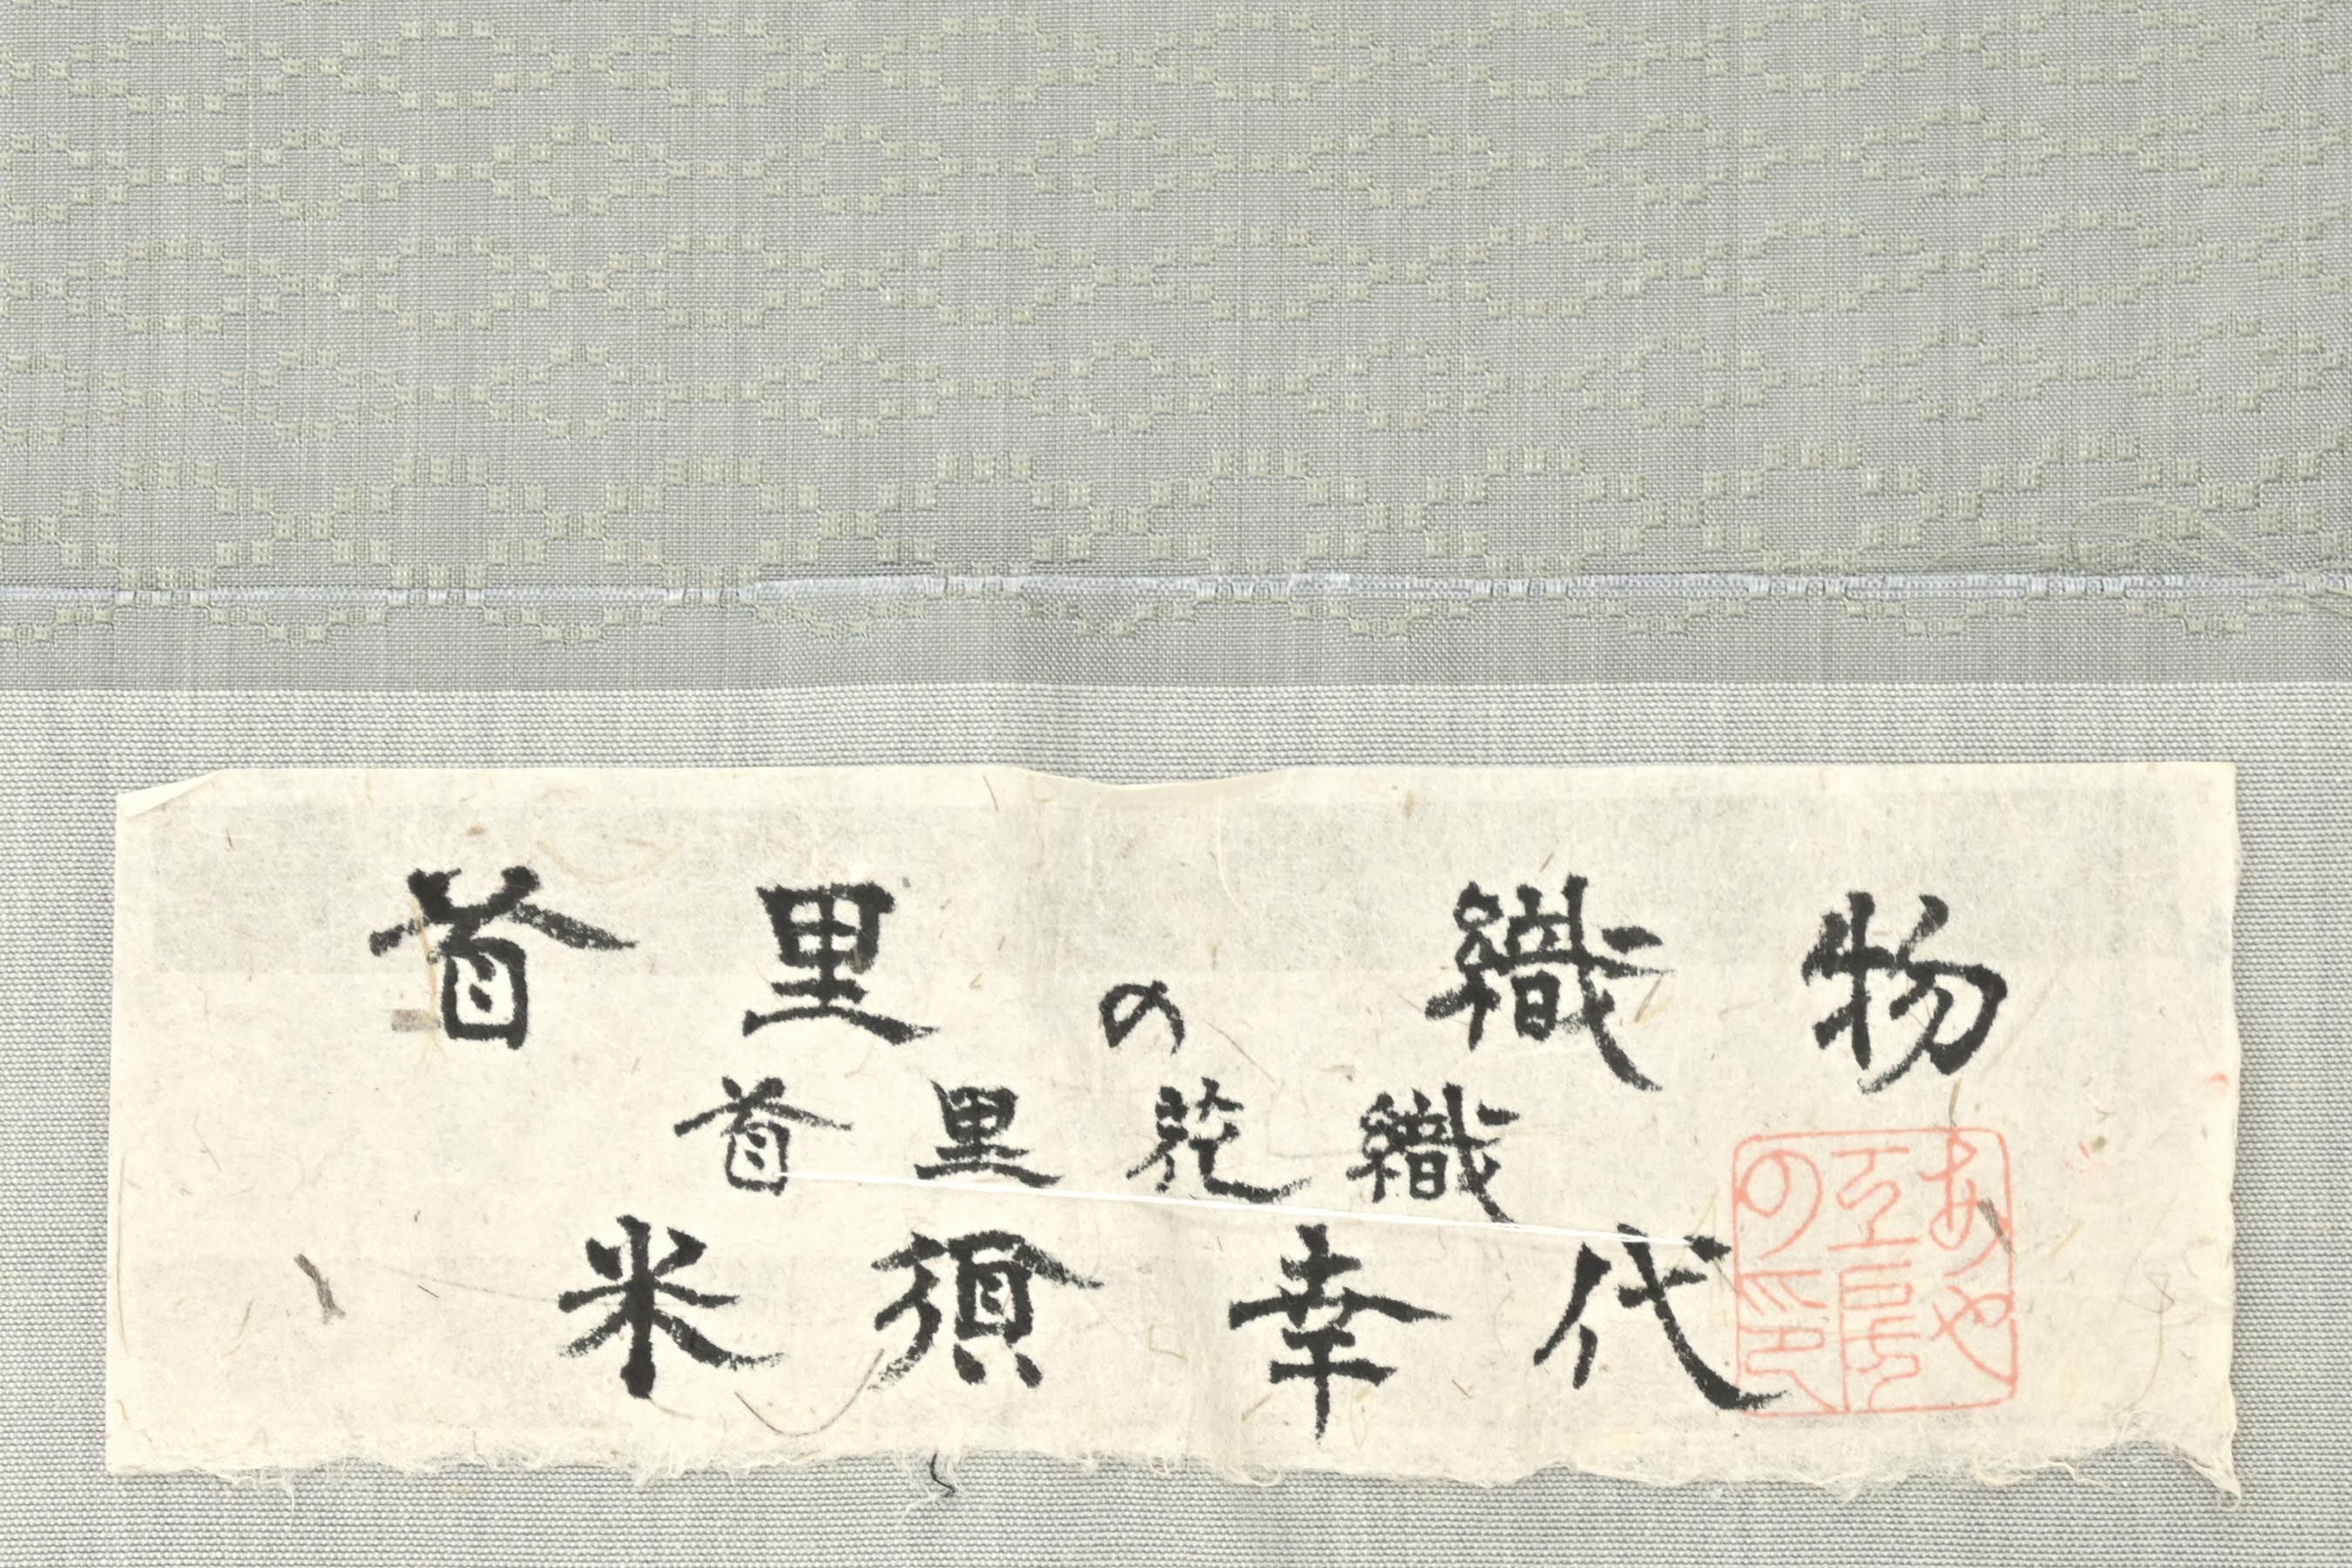 首里の織物
首里花織
米須幸代
あや工房の印